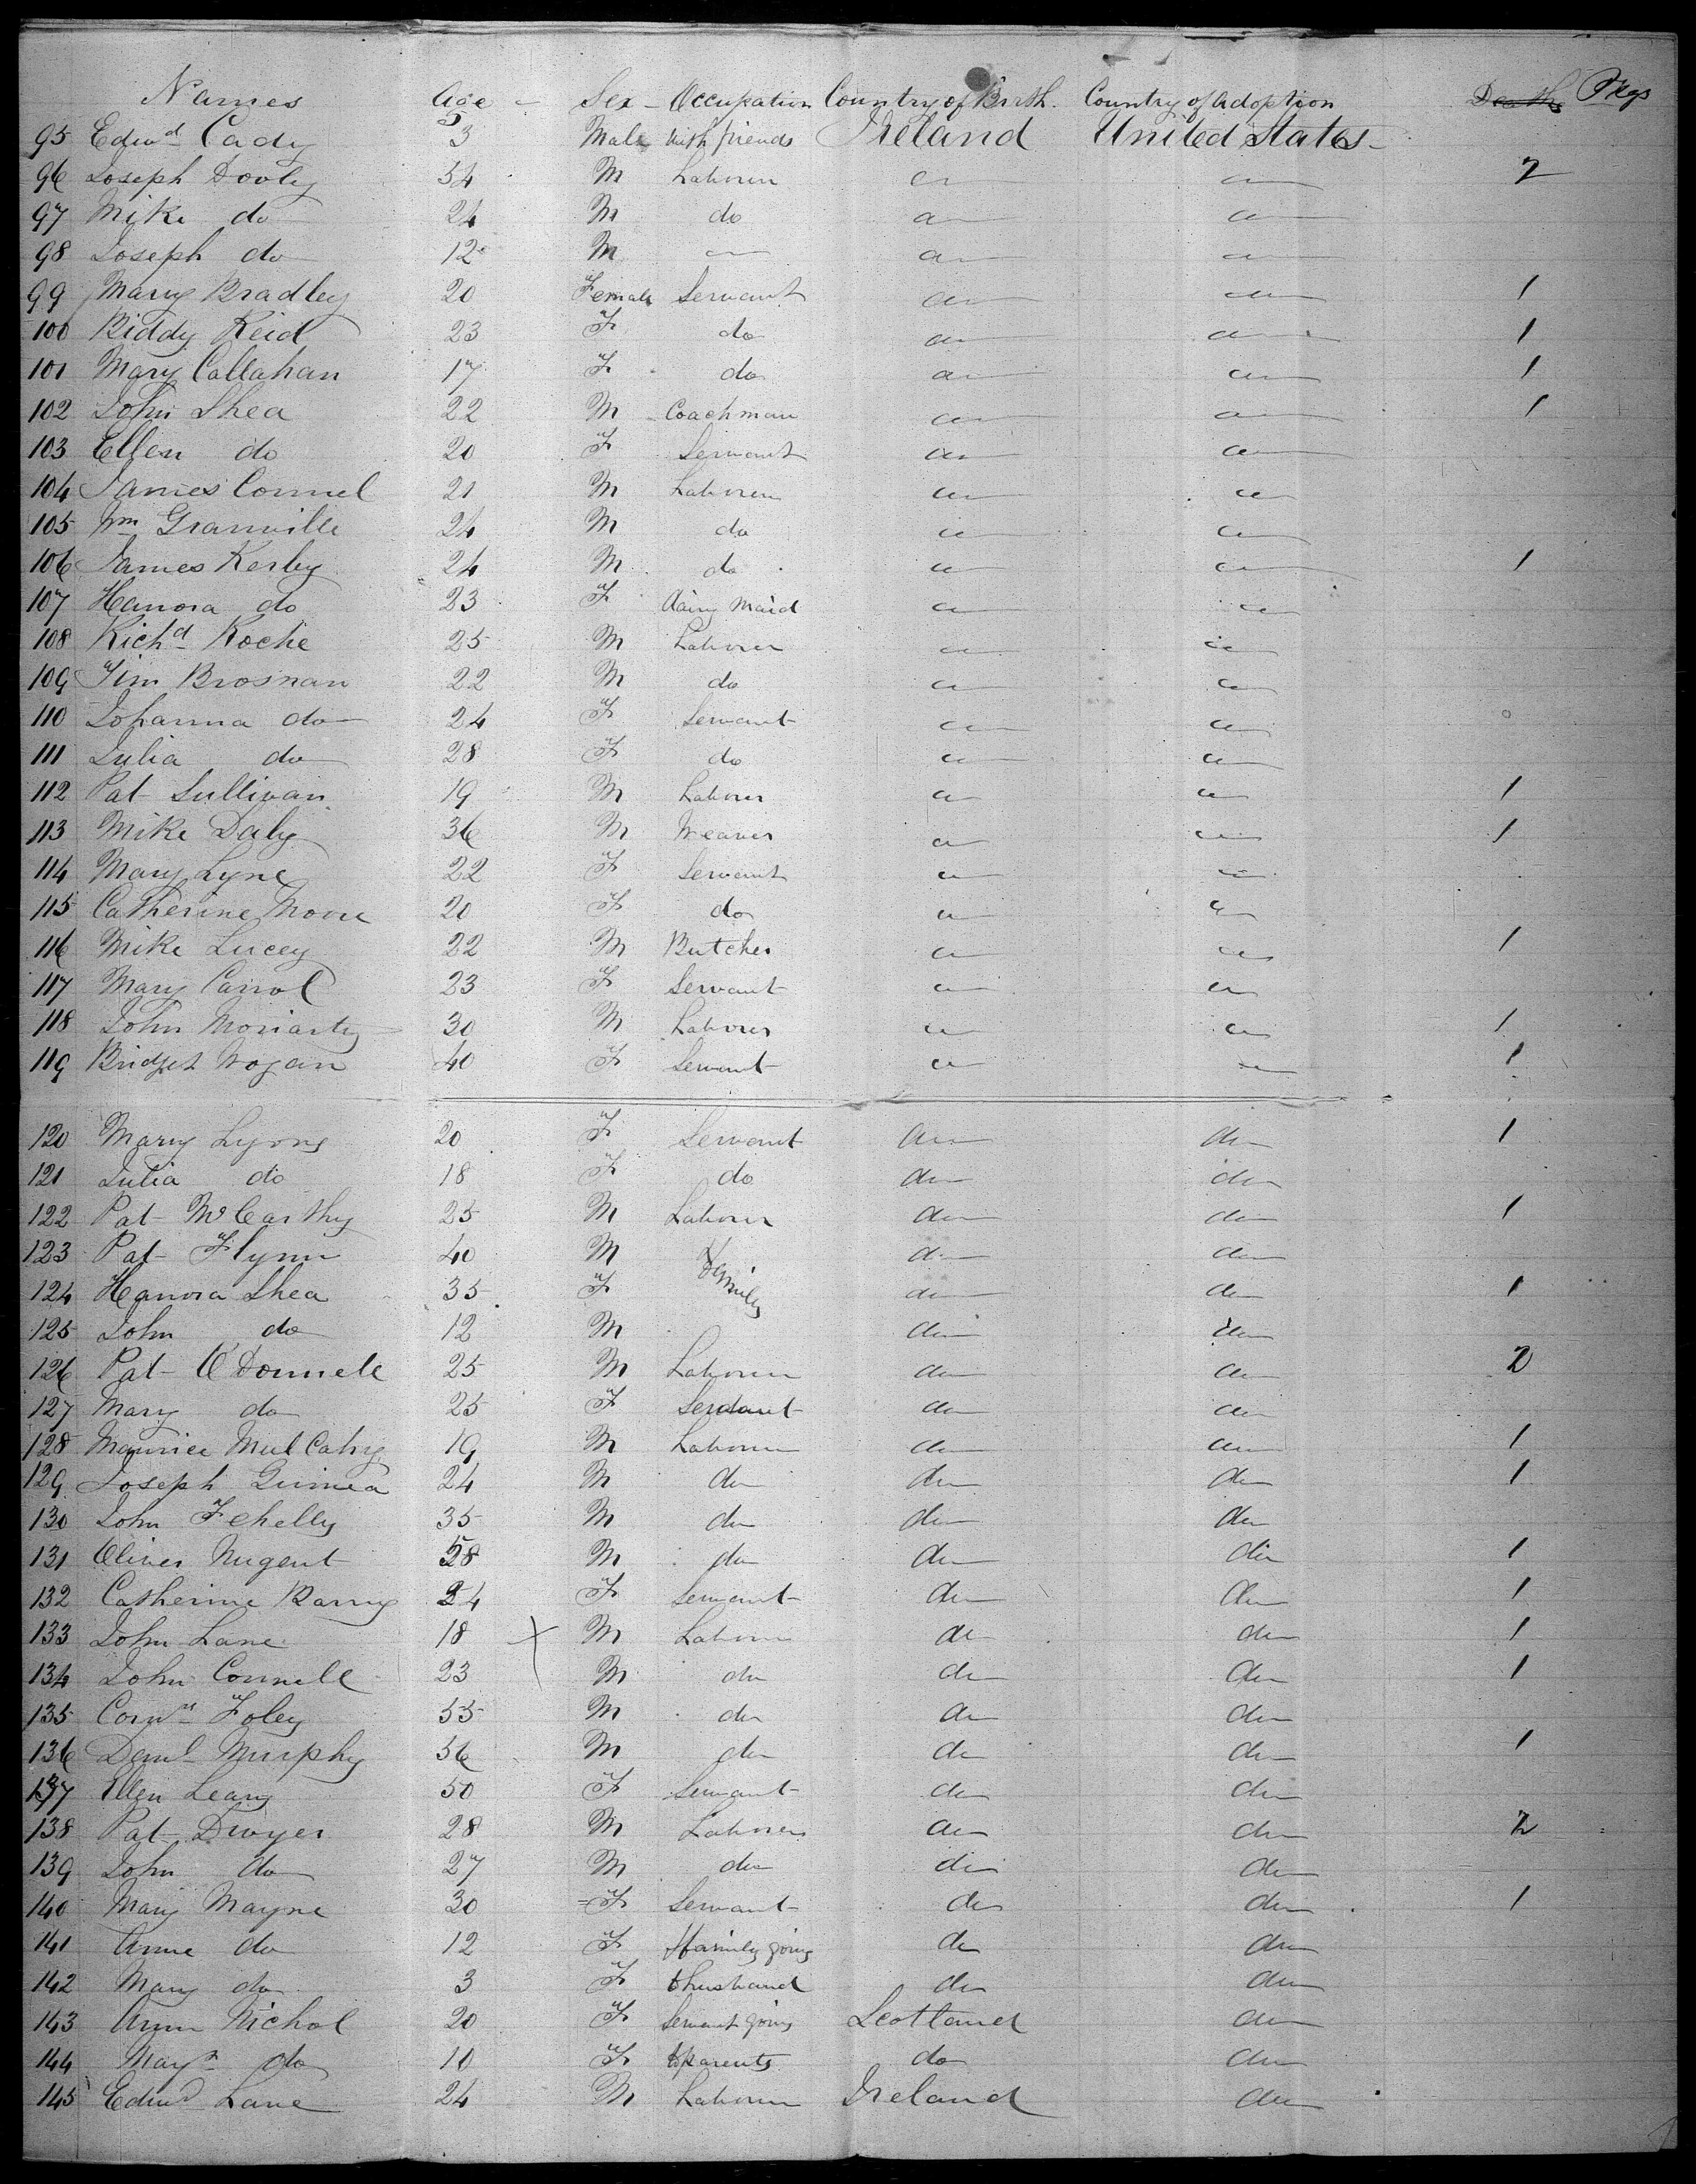 Names Age Sex Occupation Country of Birth. Country of Adoption Deaths Pkgs
95 Edwd Cady 3 Male with friends Ireland United States
96 Joseph Dooly 54 M Laborer do do 2
97 Mike do 24 M do do do
98 Joseph do 12 M do do do
99 Mary Bradley 20 Female Servant do do 1
100 Biddy Reid 23 F do do do 1
101 Mary Callahan 17 F do do do 1
102 John Shea 22 M Coachman do do 1
103 Ellen do 20 F Servant do do
104 James Connel 21 M Laborer do do
105 Wm Granville 24 M do do do
106 James Kerley 24 M do do do 1
107 Hanora do 23 F dairy Maid do do
108 Richd Roche 25 M Laborer do do
109 Tim Brosnan 22 M do do do
110 Johanna do 24 F Servant do do
111 Julia do 28 F do do do
112 Pat Sullivan 19 M Laborer do do 1
113 Mike Daly 36 M Weaver do do 1
114 Mary Lyne 22 F Servant do do
115 Catherine Moore 20 F do do do
116 Mike Lucey 22 M Butcher do do 1
117 Mary Carrol 23 F Servant do do
118 John Moriarty 30 M Laborer do do 1
119 Bridget Wogan 40 F Servant do do 1
120 Mary Lyons 20 F Servant do do 1
121 Julia do 18 F do do do
122 Pat McCarthy 25 M Laborer do do 1
123 Pat Flynn 40 M do do
124 Hanora Shea 35 F family do do 1
125 John do 12 M do do
126 Pat O'Donnell 25 M Laborer do do 2
127 Mary do 25 F Servant do do
128 Maurice MulCahy 19 M Laborer do do 1
129 Joseph Guinea 24 M do do do 1
130 John Fehelly 35 M do do do
131 Oliver Nugent 28 M do do do 1
132 Catherine Barry 24 F Servant do do 1
133 John Lane 18 X M Laborer do do 1
134 John Connell 23 M do do do 1
135 Foley 55 M do do do
136 Danl Murphy 56 M do do do 1
137 Ellen Leary 50 F Servant do do
138 Pat Dwyer 28 M Laborer do do 2
139 John do 27 M do do do
140 Mary Mayne 30 F Servant do do 1
141 Anne do 12 F family going do do
142 Mary do 3 F to husband do do
143 Ann Nichol 20 F Servant going Scotland do
144 do 10 F to parents do do
145 Edwd Lane 24 M Laborer Ireland do